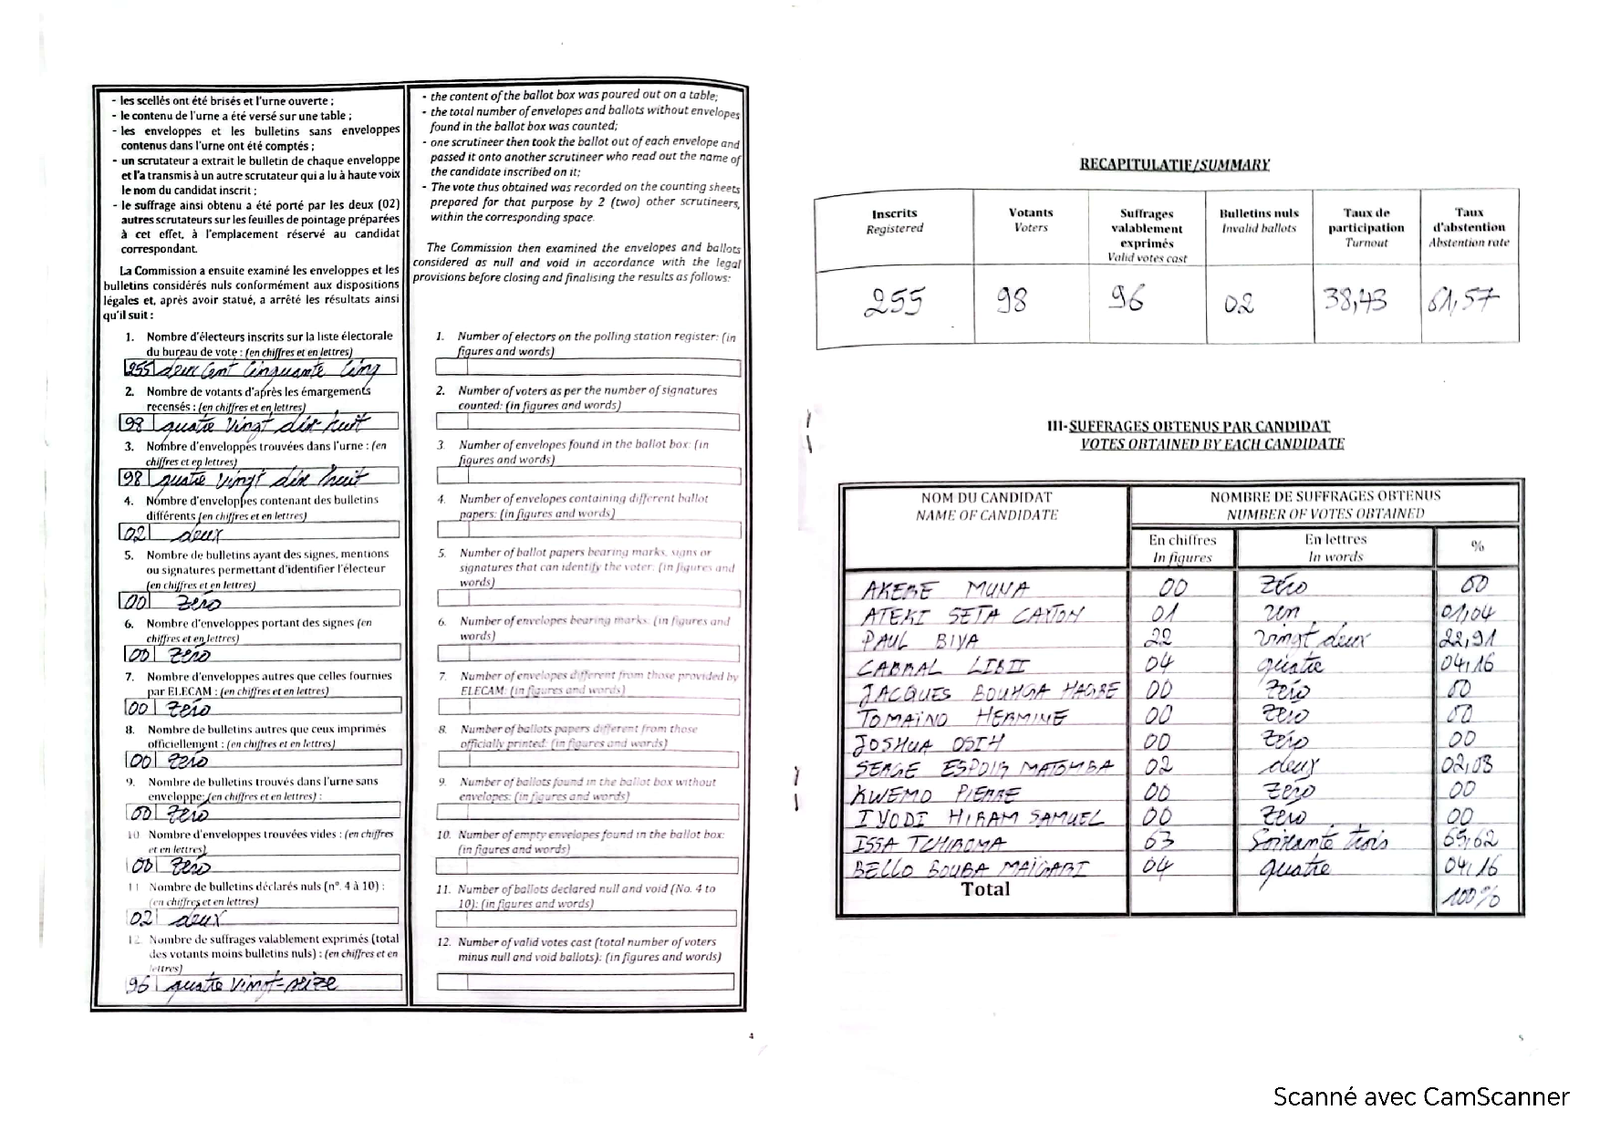 - les scellés ont été brisés et l'urne ouverte ;
- le contenu de l'urne a été versé sur une table ;
- les enveloppes et les bulletins sans enveloppes
contenus dans l'urne ont été comptés ;
- un scrutateur a extrait le bulletin de chaque enveloppe
et l'a transmis à un autre scrutateur qui a lu à haute voix
le nom du candidat inscrit ;
- le suffrage ainsi obtenu a été porté par les deux (02)
autres scrutateurs sur les feuilles de pointage préparées
à cet effet, à l'emplacement réservé au candidat
correspondant.
La Commission a ensuite examiné les enveloppes et les
bulletins considérés nuls conformément aux dispositions
légales et, après avoir statué, a arrêté les résultats ainsi
qu'il suit :
1. Nombre d'électeurs inscrits sur la liste électorale
du bureau de vote : (en chiffres et en lettres)
255 deux cent cinquante cinq
2. Nombre de votants d'après les émargements
recensés : (en chiffres et en lettres)
98 quatre vingt dix huit
3. Nombre d'enveloppes trouvées dans l'urne : (en
chiffres et en lettres)
98 quatre vingt dix huit
4. Nombre d'enveloppes contenant des bulletins
différents (en chiffres et en lettres)
02 deux
5. Nombre de bulletins ayant des signes, mentions
ou signatures permettant d'identifier l'électeur
(en chiffres et en lettres)
00 zéro
6. Nombre d'enveloppes portant des signes (en
chiffres et en lettres)
00 zéro
7. Nombre d'enveloppes autres que celles fournies
par ELECAM : (en chiffres et en lettres)
00 zéro
8. Nombre de bulletins autres que ceux imprimés
officiellement : (en chiffres et en lettres)
00 zéro
9. Nombre de bulletins trouvés dans l'urne sans
enveloppe: (en chiffres et en lettres) :
00 zéro
10 Nombre d'enveloppes trouvées vides : (en chiffres
et en lettres)
00 zéro
11 Nombre de bulletins déclarés nuls (n°. 4 à 10) :
(en chiffres et en lettres)
02 deux
12. Nombre de suffrages valablement exprimés (total
des votants moins bulletins nuls) : (en chiffres et en
lettres)
96 quatre vingt-seize
- the content of the ballot box was poured out on a table;
- the total number of envelopes and ballots without envelopes
found in the ballot box was counted;
- one scrutineer then took the ballot out of each envelope and
passed it onto another scrutineer who read out the name of
the candidate inscribed on it;
- The vote thus obtained was recorded on the counting sheets
prepared for that purpose by 2 (two) other scrutineers,
within the corresponding space.
The Commission then examined the envelopes and ballots
considered as null and void in accordance with the legal
provisions before closing and finalising the results as follows:
1. Number of electors on the polling station register: (in
figures and words)
2. Number of voters as per the number of signatures
counted: (in figures and words)
3. Number of envelopes found in the ballot box: (in
figures and words)
4. Number of envelopes containing different ballot
papers: (in figures and words)
5. Number of ballot papers bearing marks, signs or
signatures that can identify the voter: (in figures and
words)
6. Number of envelopes bearing marks. (in figures and
words)
7. Number of envelopes different from those provided by
ELECAM: (in figures and words)
8. Number of ballots papers different from those
officially printed: (in figures and words)
9. Number of ballots found in the ballot box without
envelopes: (in figures and words)
10. Number of empty envelopes found in the ballot box:
(in figures and words)
11. Number of ballots declared null and void (No. 4 to
10): (in figures and words)
12. Number of valid votes cast (total number of voters
minus null and void ballots): (in figures and words)
4
RECAPITULATIF/SUMMARY
Inscrits Votants Suffrages Bulletins nuls Taux de Taux
Registered Voters valablement Invalid ballots participation d'abstention
exprimés Turnout Abstention rate
Valid votes cast
255 98 96 02 38,43 61,57
III-SUFFRAGES OBTENUS PAR CANDIDAT
VOTES OBTAINED BY EACH CANDIDATE
NOM DU CANDIDAT NOMBRE DE SUFFRAGES OBTENUS
NAME OF CANDIDATE NUMBER OF VOTES OBTAINED
En chiffres En lettres %
In figures In words
AKERE MUNA 00 zéro 00
ATEKI SETA CAXTON 01 un 01,04
PAUL BIYA 22 vingt deux 22,91
CABRAL LIBII 04 quatre 04,16
JACQUES BOUHGA HAGBE 00 zéro 00
TOMAÏNO HERMINE 00 zéro 00
JOSHUA OSIH 00 zéro 00
SERGE ESPOIR MATOMBA 02 deux 02,08
KWEMO PIERRE 00 zéro 00
IYODI HIRAM SAMUEL 00 zéro 00
ISSA TCHIROMA 63 Soixante trois 65,62
BELLO BOUBA MAÏGARI 04 quatre 04,16
Total 100%
5
Scanné avec CamScanner